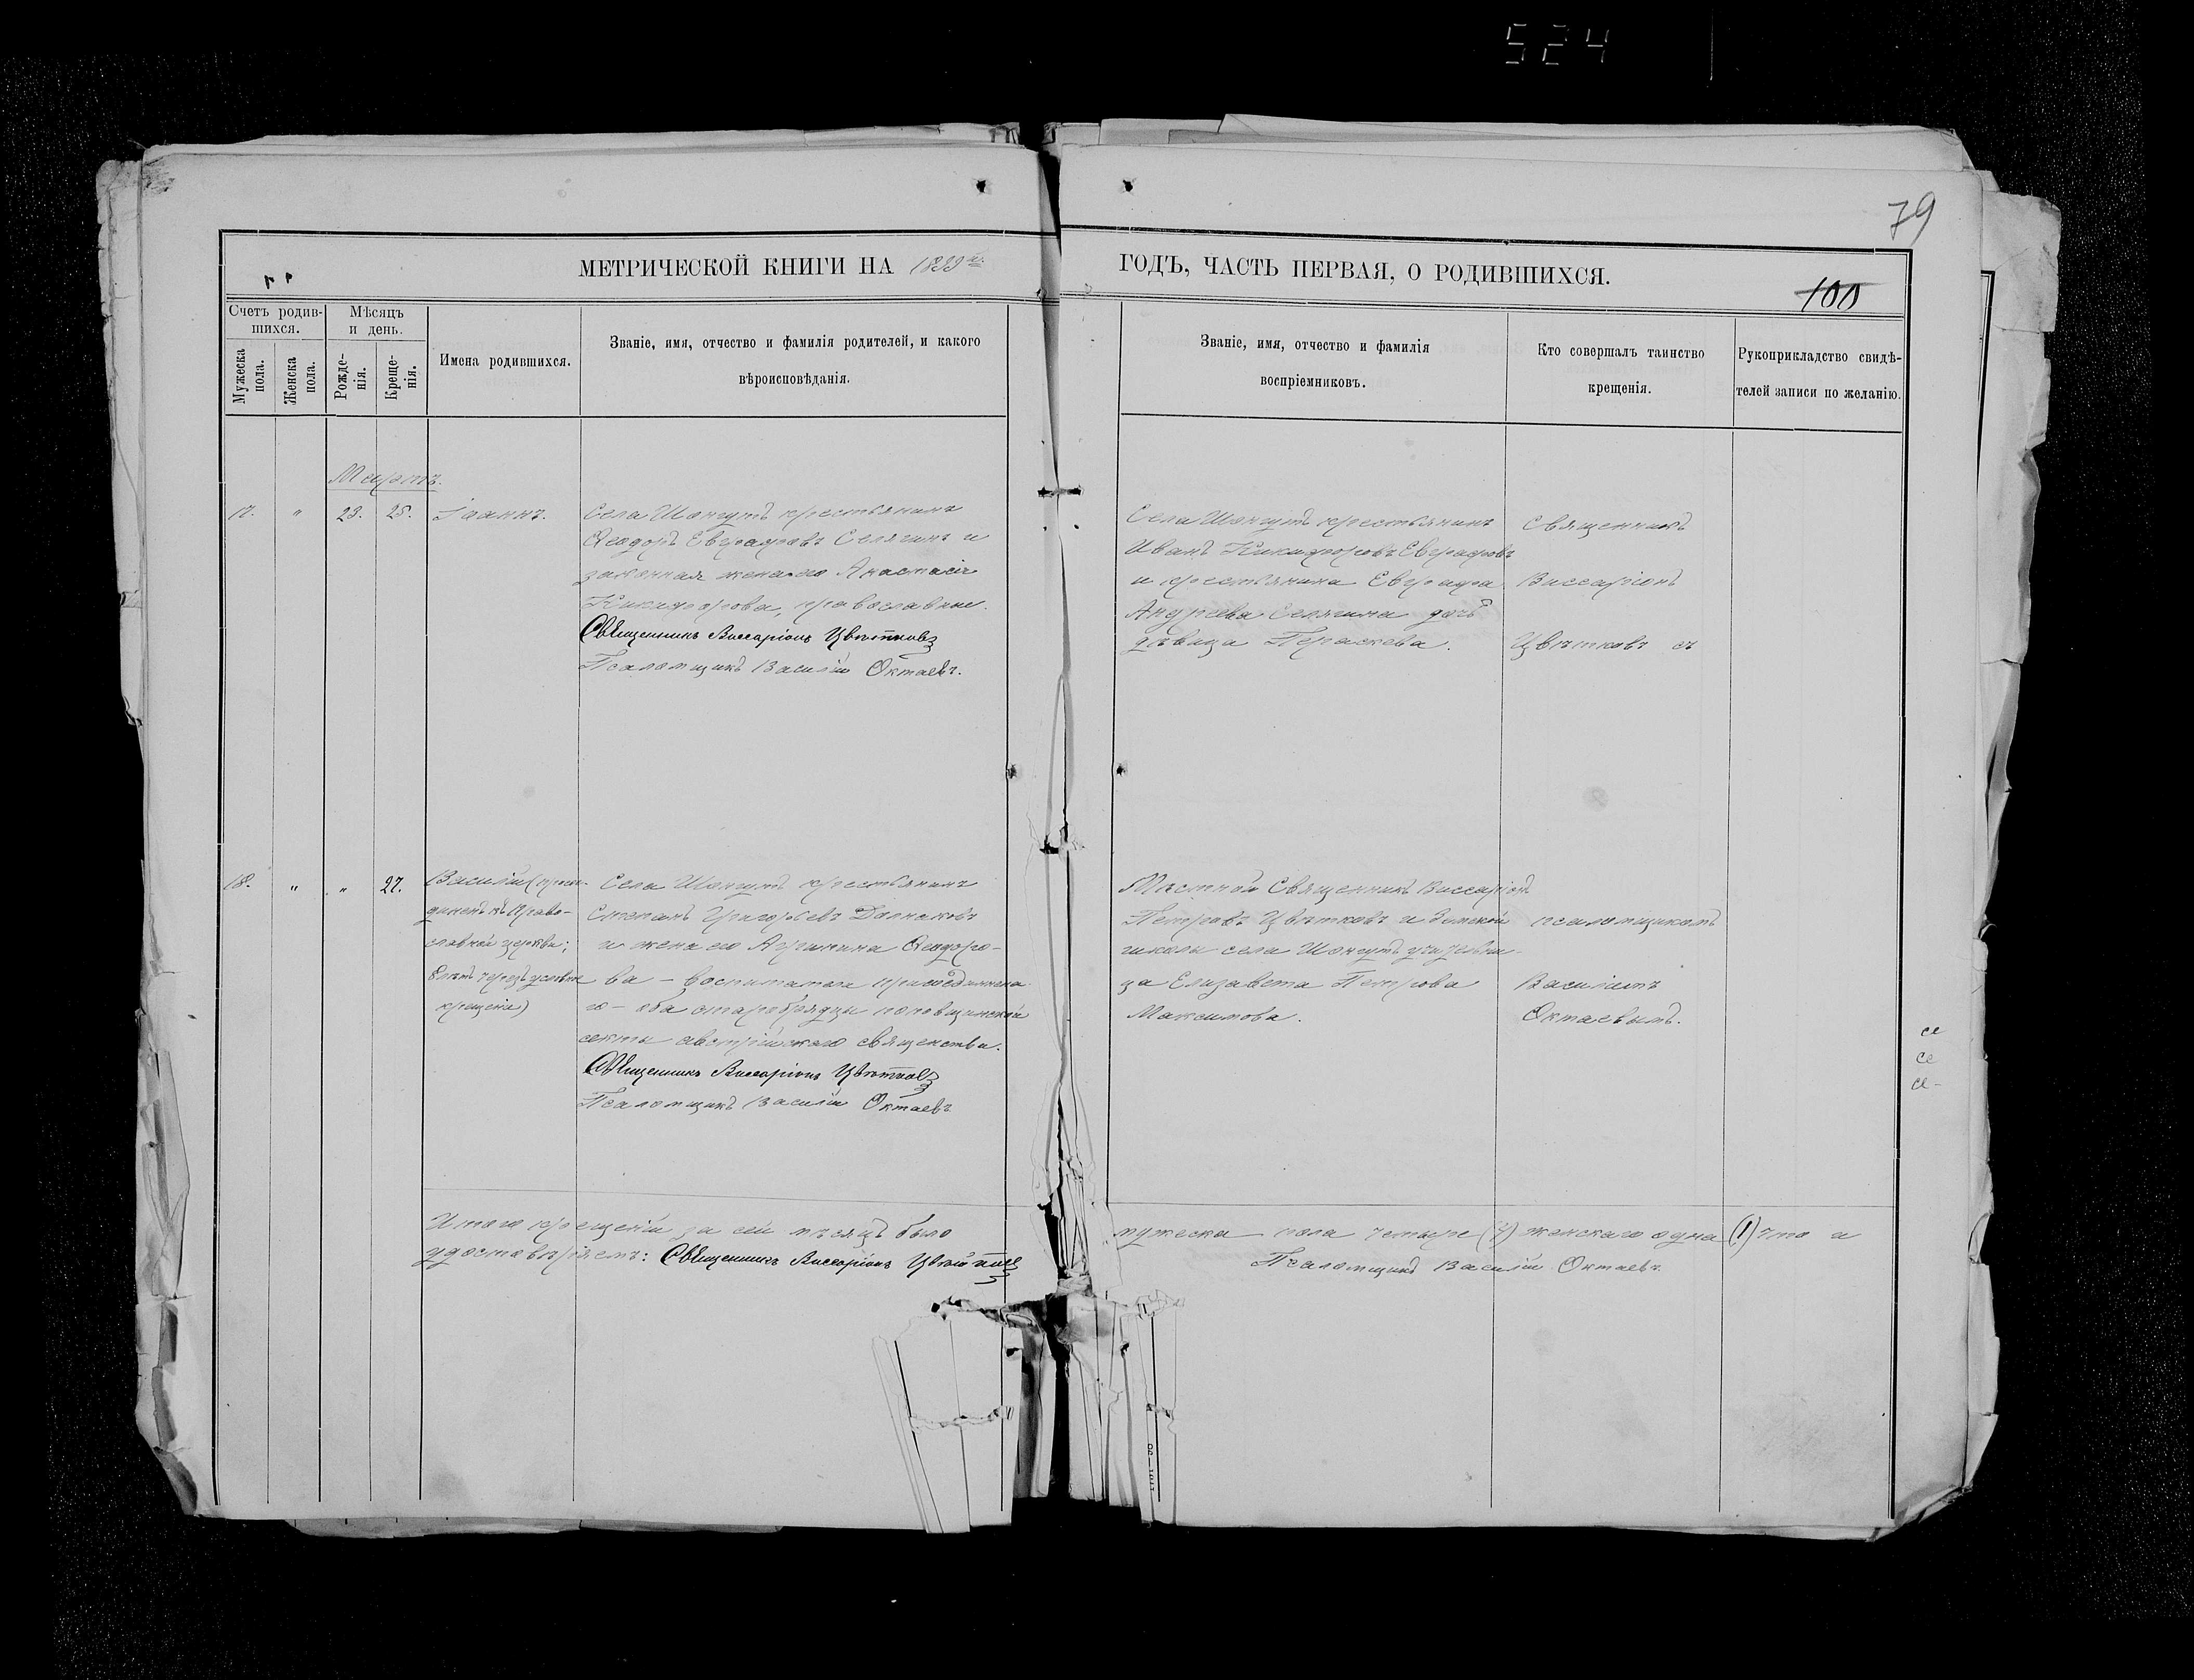 524
79
МЕТРИЧЕСКОЙ КНИГИ НА 1899 й
ГОДЪ, ЧАСТЬ ПЕРВАЯ, О РОДИВШИХСЯ.
100
Счетъ родив-
шихся.
Мужеска
пола.
Женска
пола.
Мѣсяцъ
и день.
Рожде-
нія.
Креще-
нія.
Имена родившихся.
Званіе, имя, отчество и фамилія родителей, и какого
вѣроисповѣданія.
Званіе, имя, отчество и фамилія
воспріемниковъ.
Кто совершалъ таинство
крещенія.
Рукоприкладство свидѣ-
телей записи по желанію.
Мартъ.
17. " 23. 25. Іоаннъ.
Села Шонгутъ крестьянинъ
Ѳеодоръ Евграфовъ Селягинъ и
законная жена его Анастасія
Никифорова, православные.
Священникъ Виссаріонъ Цвѣтковъ
Псаломщикъ Василій Октаевъ.
Села Шонгутъ крестьянинъ
Иванъ Никифоровъ Евграфовъ
и крестьянина Евграфа
Андреева Селягина дочь
дѣвица Параскева.
Священникъ
Виссаріонъ
Цвѣтковъ съ
18. " " 27. Василій (присо-
диненъ къ Право-
славной церкви;
лѣтъ чрезъ условное
крещеніе)
Села Шонгутъ крестьянинъ
Степанъ Григорьевъ
и жена его Агрипина Ѳеодоро-
ва - воспитатели присоединенна-
го - оба старобрядцы поповщинской
секты австрійскаго священства.
Священникъ Виссаріонъ Цвѣтковъ
Псаломщикъ Василій Октаевъ
Мѣстной Священникъ Виссаріонъ
Петровъ Цвѣтковъ и Земской
школы села Шонгутъ учительни-
ца Елизавета Петрова
Максимова.
псаломщикомъ
Василіемъ
Октаевымъ.
Итого крещеній за сей мѣсяцъ было
мужеска пола четыре (4) женскаго одна (1) что и
удостовѣряемъ: Священникъ Виссаріонъ Цвѣтковъ
Псаломщикъ Василій Октаевъ